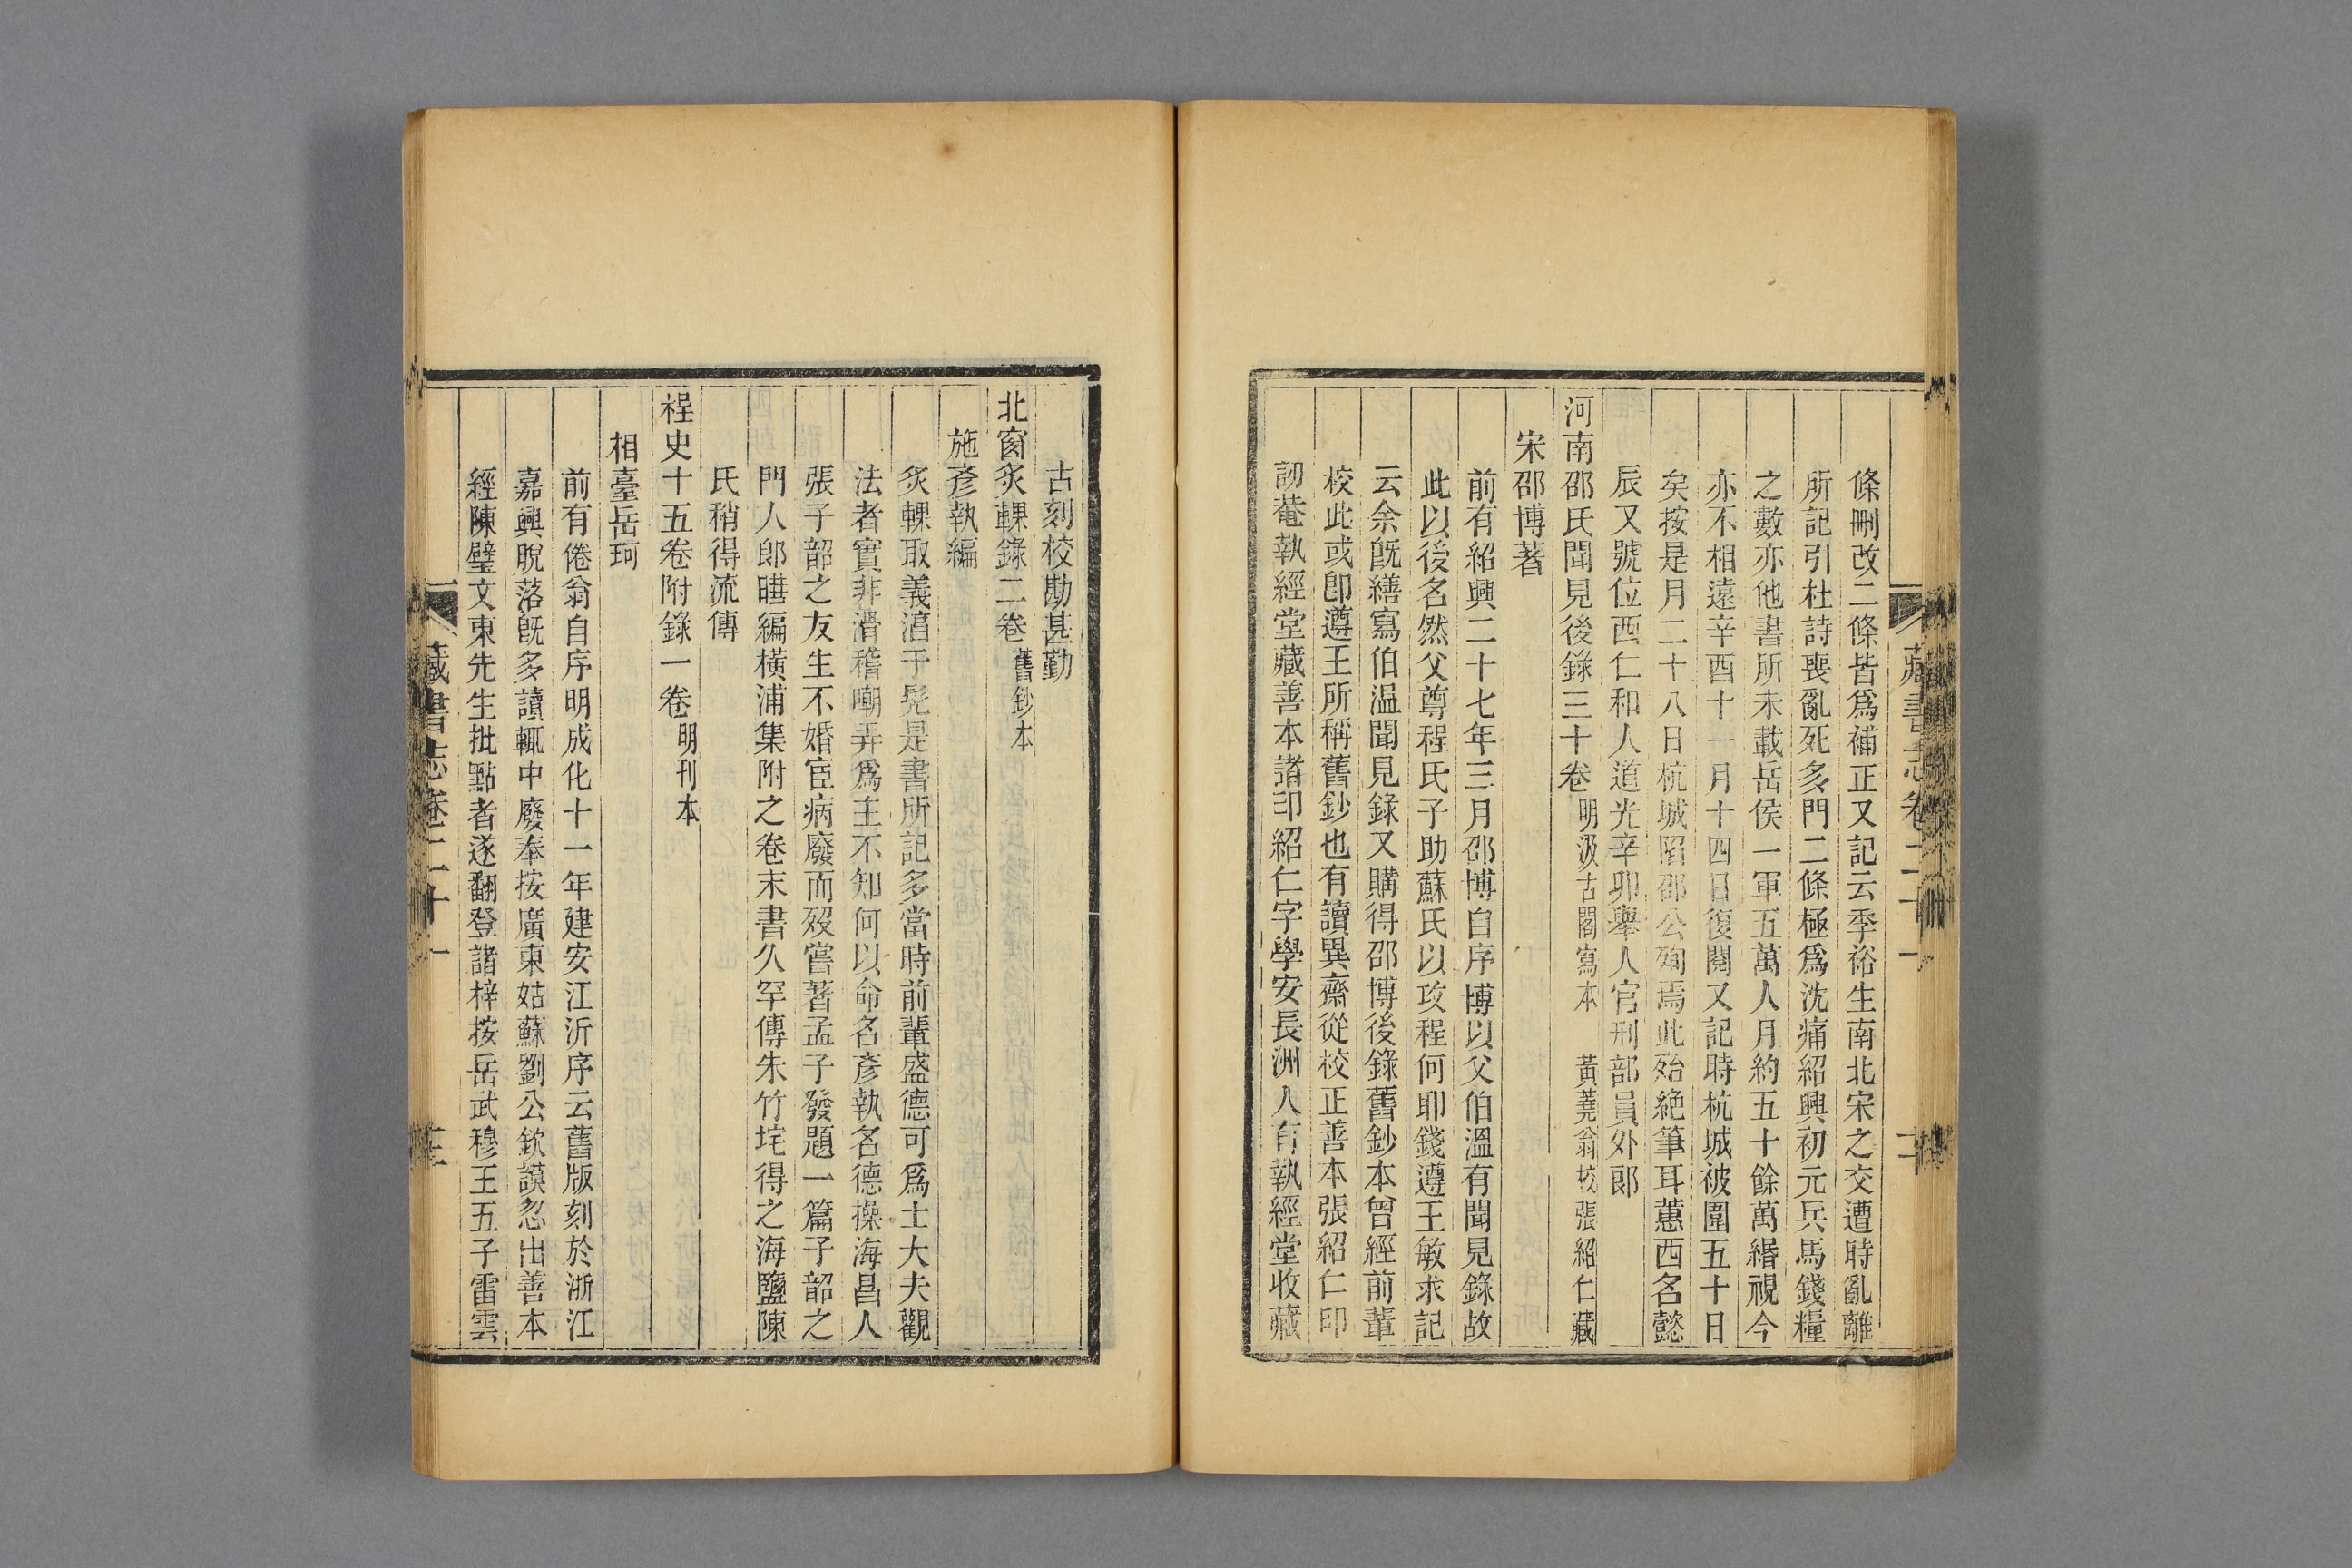 條刪改二條皆爲補正又記云季裕生南北宋之交遭時亂離
所記引杜詩喪亂死多門二條極爲沈痛紹興初元兵馬錢糧
之數亦他書所未載岳侯一軍五萬人月約五十餘萬緡視今
亦不相遠辛酉十一月十四日復閱又記時杭城被圍五十日
矣按是月二十八日杭城陷邵公殉焉此殆絶筆耳蕙西名懿
辰又號位西仁和人道光辛卯舉人官刑部員外郎
河南邵氏聞見後錄三十卷 明汲古閣寫本 黃蕘翁校張紹仁藏
宋邵博著
前有紹興二十七年三月邵博自序博以父伯溫有聞見錄故
此以後名然父尊程氏子助蘇氏以攻程何耶錢遵王敏求記
云余旣繕寫伯温聞見錄又購得邵博後錄舊鈔本曾經前輩
校此或卽遵王所稱舊鈔也有讀異齋從校正善本張紹仁印
訒菴執經堂藏善本諸印紹仁字學安長洲人有執經堂收藏
藏書志卷二十一
古刻校勘甚勤
北窗炙輠錄二卷 舊鈔本
施彥執編
炙輠取義滑于髡是書所記多當時前輩盛德可爲士大夫觀
法者實非滑稽嘲弄爲主不知何以命名彥執名德操海昌人
張子韶之友生不婚宦病廢而歿嘗著孟子發題一篇子韶之
門人郎曄編橫浦集附之卷末書久罕傳朱竹垞得之海鹽陳
氏稍得流傳
桯史十五卷附錄一卷 明刊本
相臺岳珂
前有倦翁自序明成化十一年建安江沂序云舊版刻於浙江
嘉興脫落旣多讀輒中廢奉按廣東姑蘇劉公欽謨忽出善本
經陳璧文東先生批點者遂翻登諸梓按岳武穆王五子雷雲
藏書志卷二十一